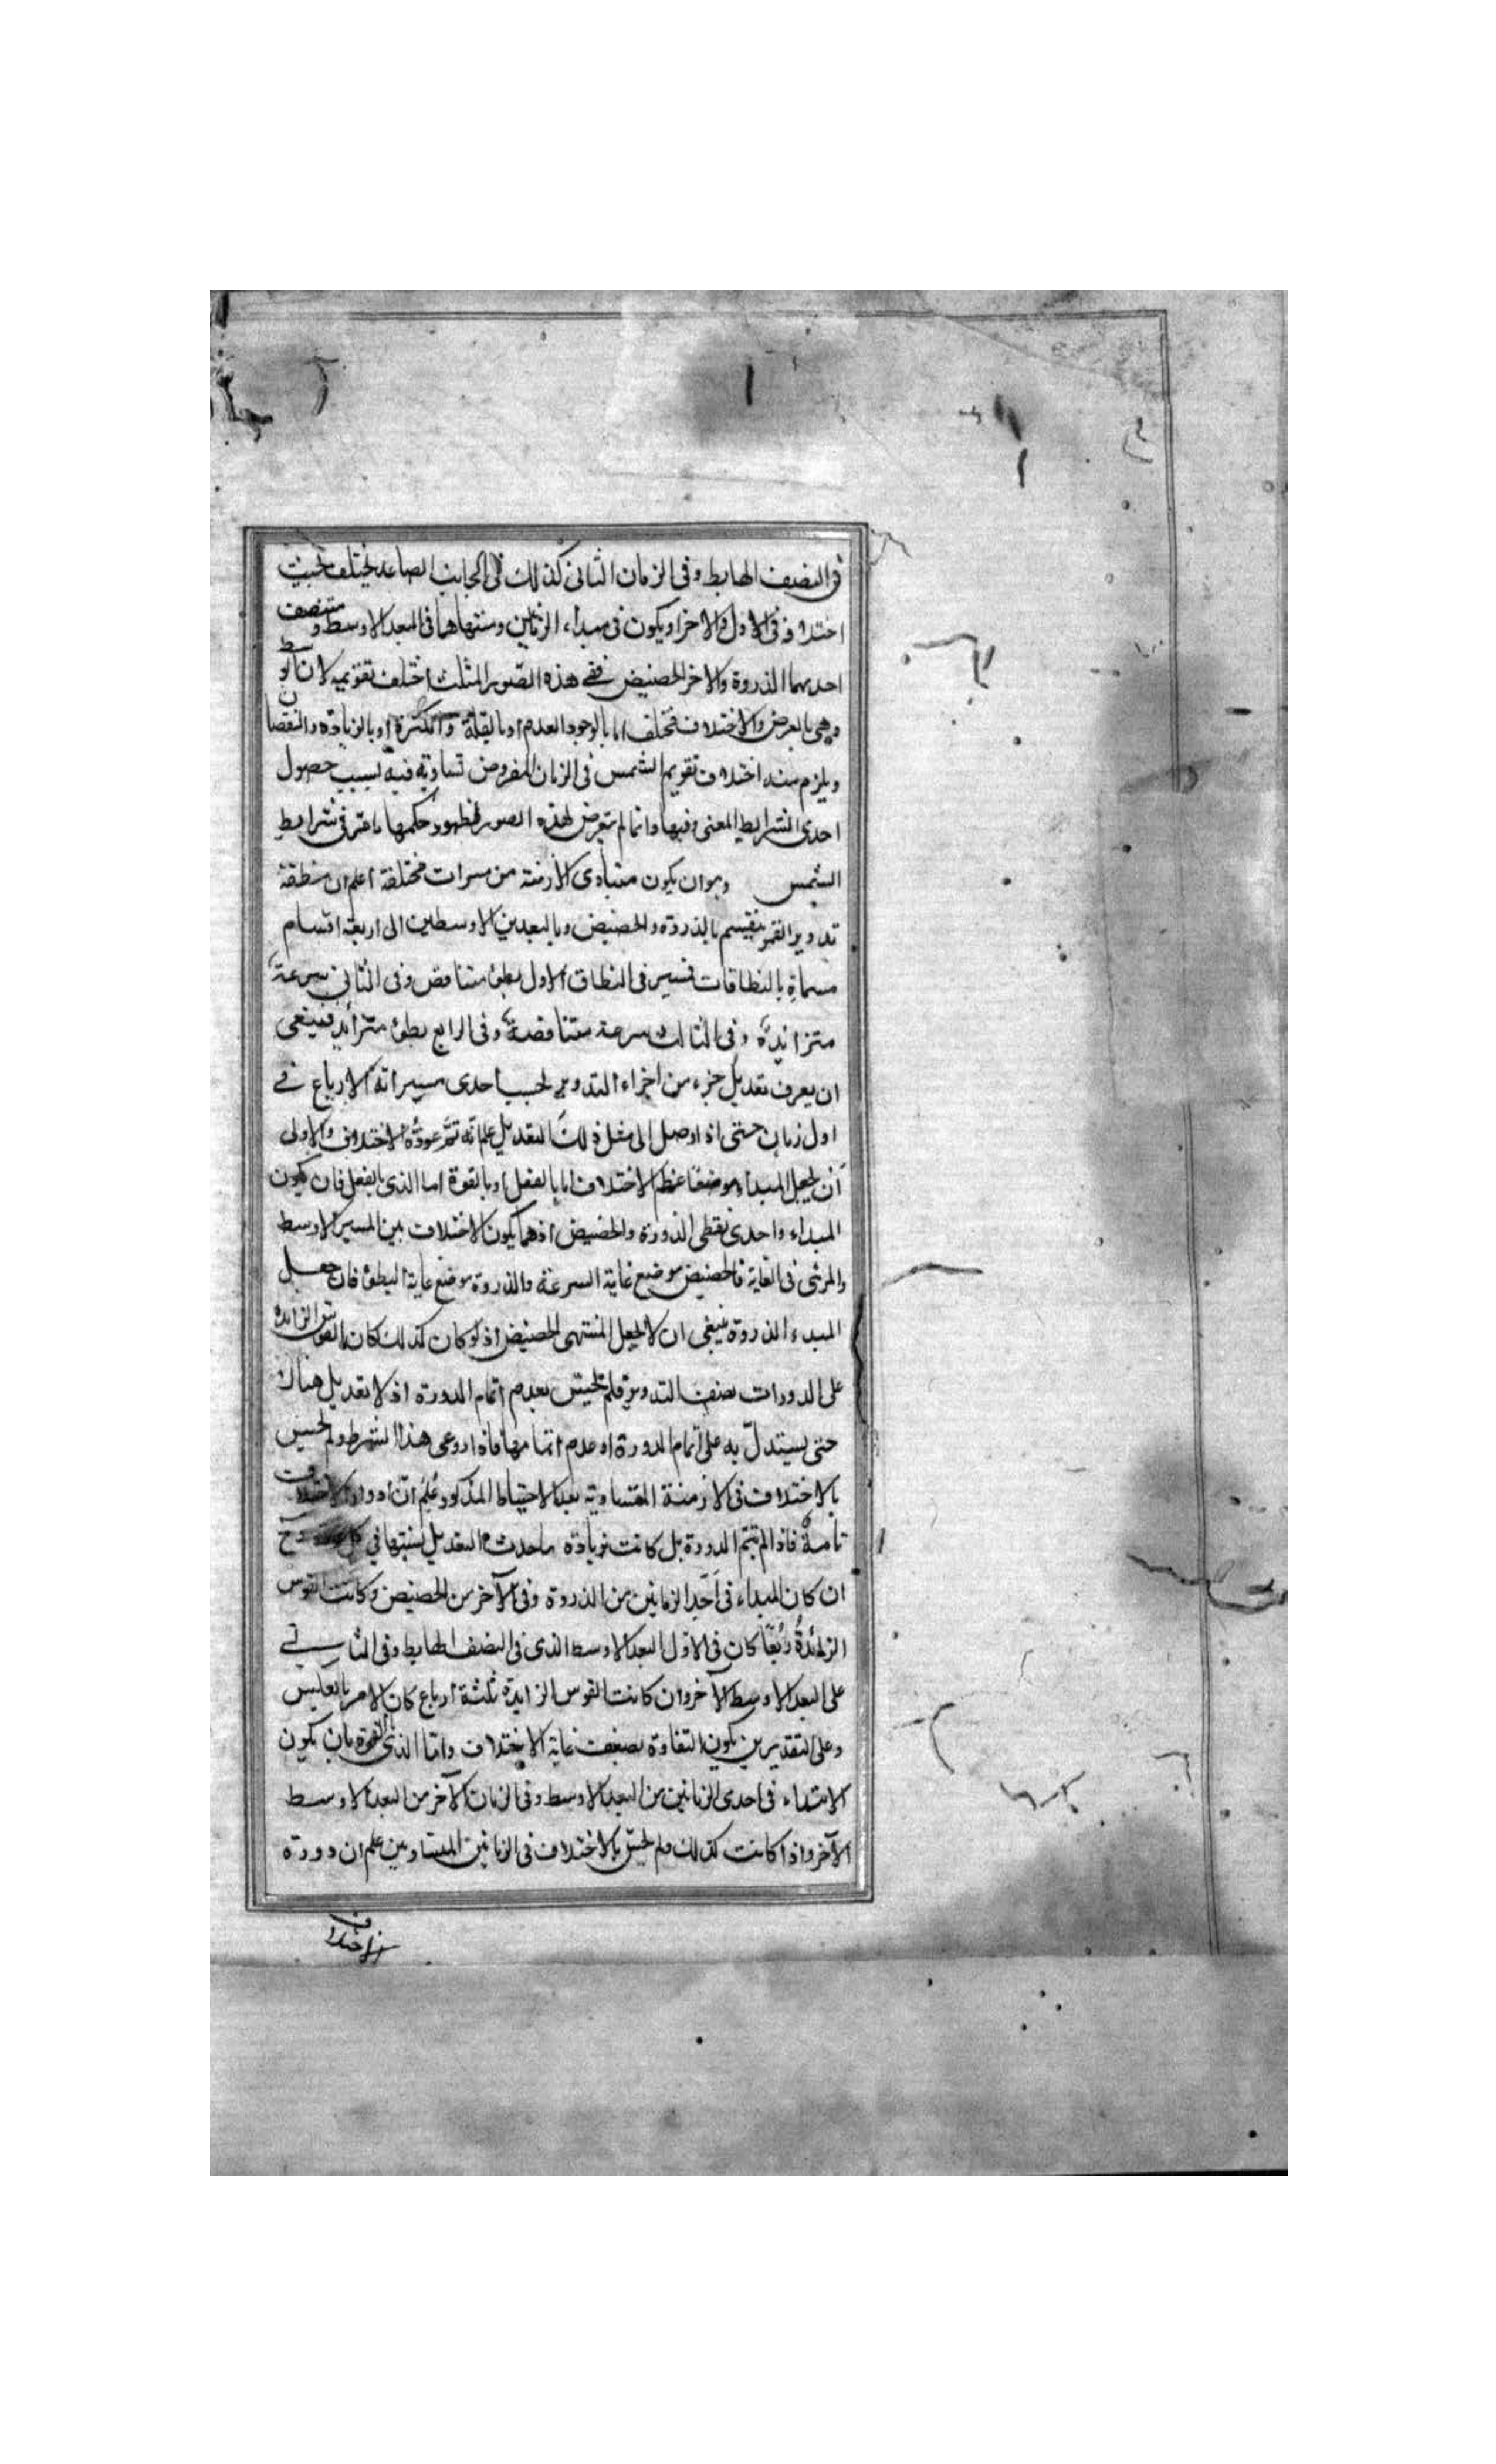 فى النصف الهابط وفى الزمان الثانى كذلك فى الجانب الصاعد يختلف بحيث
اختلافه فى الاول والاخر او يكون فى مبداء الزمانين ومنتهاهما فى البعد الاوسط ومنتصف
احدهما الذروة والاخر الحضيض ففى هذه الصور المثلث اختلف تقويمه لان الوسط
وهى بالعرض والاختلاف مختلف اما بالوجود والعدم او بالقلة والكثرة او بالزيادة والنقصان
ويلزم منه اختلاف تقويم الشمس فى الزمان المفروض تساويه فيه بسبب حصول
احدى الشرايط المعنى فيها وانما لم يتعرض لهذه الصور لظهور حكمها مما مر فى شرايط
الشمس وهو ان يكون متساوى الازمنة من مسيرات مختلفة اعلم ان منطقة
تدوير القمر ينقسم بالذروة والحضيض وبالبعدين الاوسطين الى اربعة اقسام
مسماة بالنطاقات فسير فى النطاق الاول بطئ متناقص وفى الثانى سرعة
متزايدة وفى الثالث سرعة متناقصة وفى الرابع بطئ متزايد فينبغى
ان يعرف تعديل جزء من اجزاء التدوير بحسب احدى مسيراته الارباع فى
اول زمان حتى اذا وصل الى مثل ذلك التعديل علم انه تم عودة الاختلاف والاولى
ان يجعل المبداء موضعا عظم الاختلاف اما بالفعل او بالقوة اما الذى بالفعل فان يكون
المبداء واحدى نقطى الذروة والحضيض اذ هما يكون الاختلاف بين المسير الاوسط
والمرئى فى الغاية فالحضيض موضع غاية السرعة والذروة موضع غاية البطئ فان جعل
المبدء الذروة ينبغى ان لا يجعل المنتهى الحضيض اذ لو كان كذلك كان القوس الزايدة
على الدورات نصف التدوير فلم يحس بعدم اتمام الدورة اذ لا تعديل هناك
حتى يستدل به على اتمام الدورة او عدم اتمامها فاذا روعى هذا الشرط ولم يحس
بالاختلاف فى الازمنة المتساوية بعد الاحتياط المذكور علم ان ادوار الاختلاف
تامة فاذا لم تتم الدورة بل كانت زيادة ما حدث التعديل بسببها فى كل
ان كان المبداء فى احد الزمانين من الذروة وفى الآخر من الحضيض وكانت القوس
الزائدة ربعا كان فى الاول البعد الاوسط الذى فى النصف الهابط وفى الثانى
على البعد الاوسط الآخر وان كانت القوس الزايدة ثلثة ارباع كان الامر بالعكس
وعلى التقديرين يكون التفاوت بضعف غاية الاختلاف واما الذى بالقوة بان يكون
الابتداء فى احدى الزمانين من البعد الاوسط وفى الزمان الآخر من البعد الاوسط
الآخر واذا كانت كذلك ولم يحس بالاختلاف فى الزمانين المتساويين علم ان دورة
الاختلاف